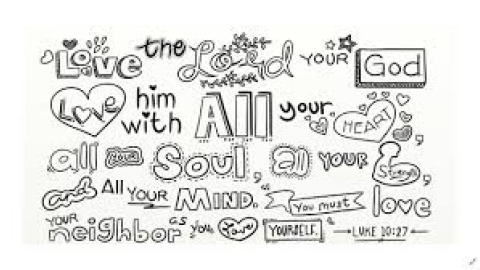 Love the Lord YOUR God
Love him with All your HEART,
all YOUR Soul, all YOUR Strength,
and All YOUR MIND. You must love
YOUR neighbor as you love YOURSELF. LUKE 10:27